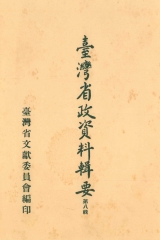 臺灣省政資料輯要
第八輯
臺灣省文獻委員會編印